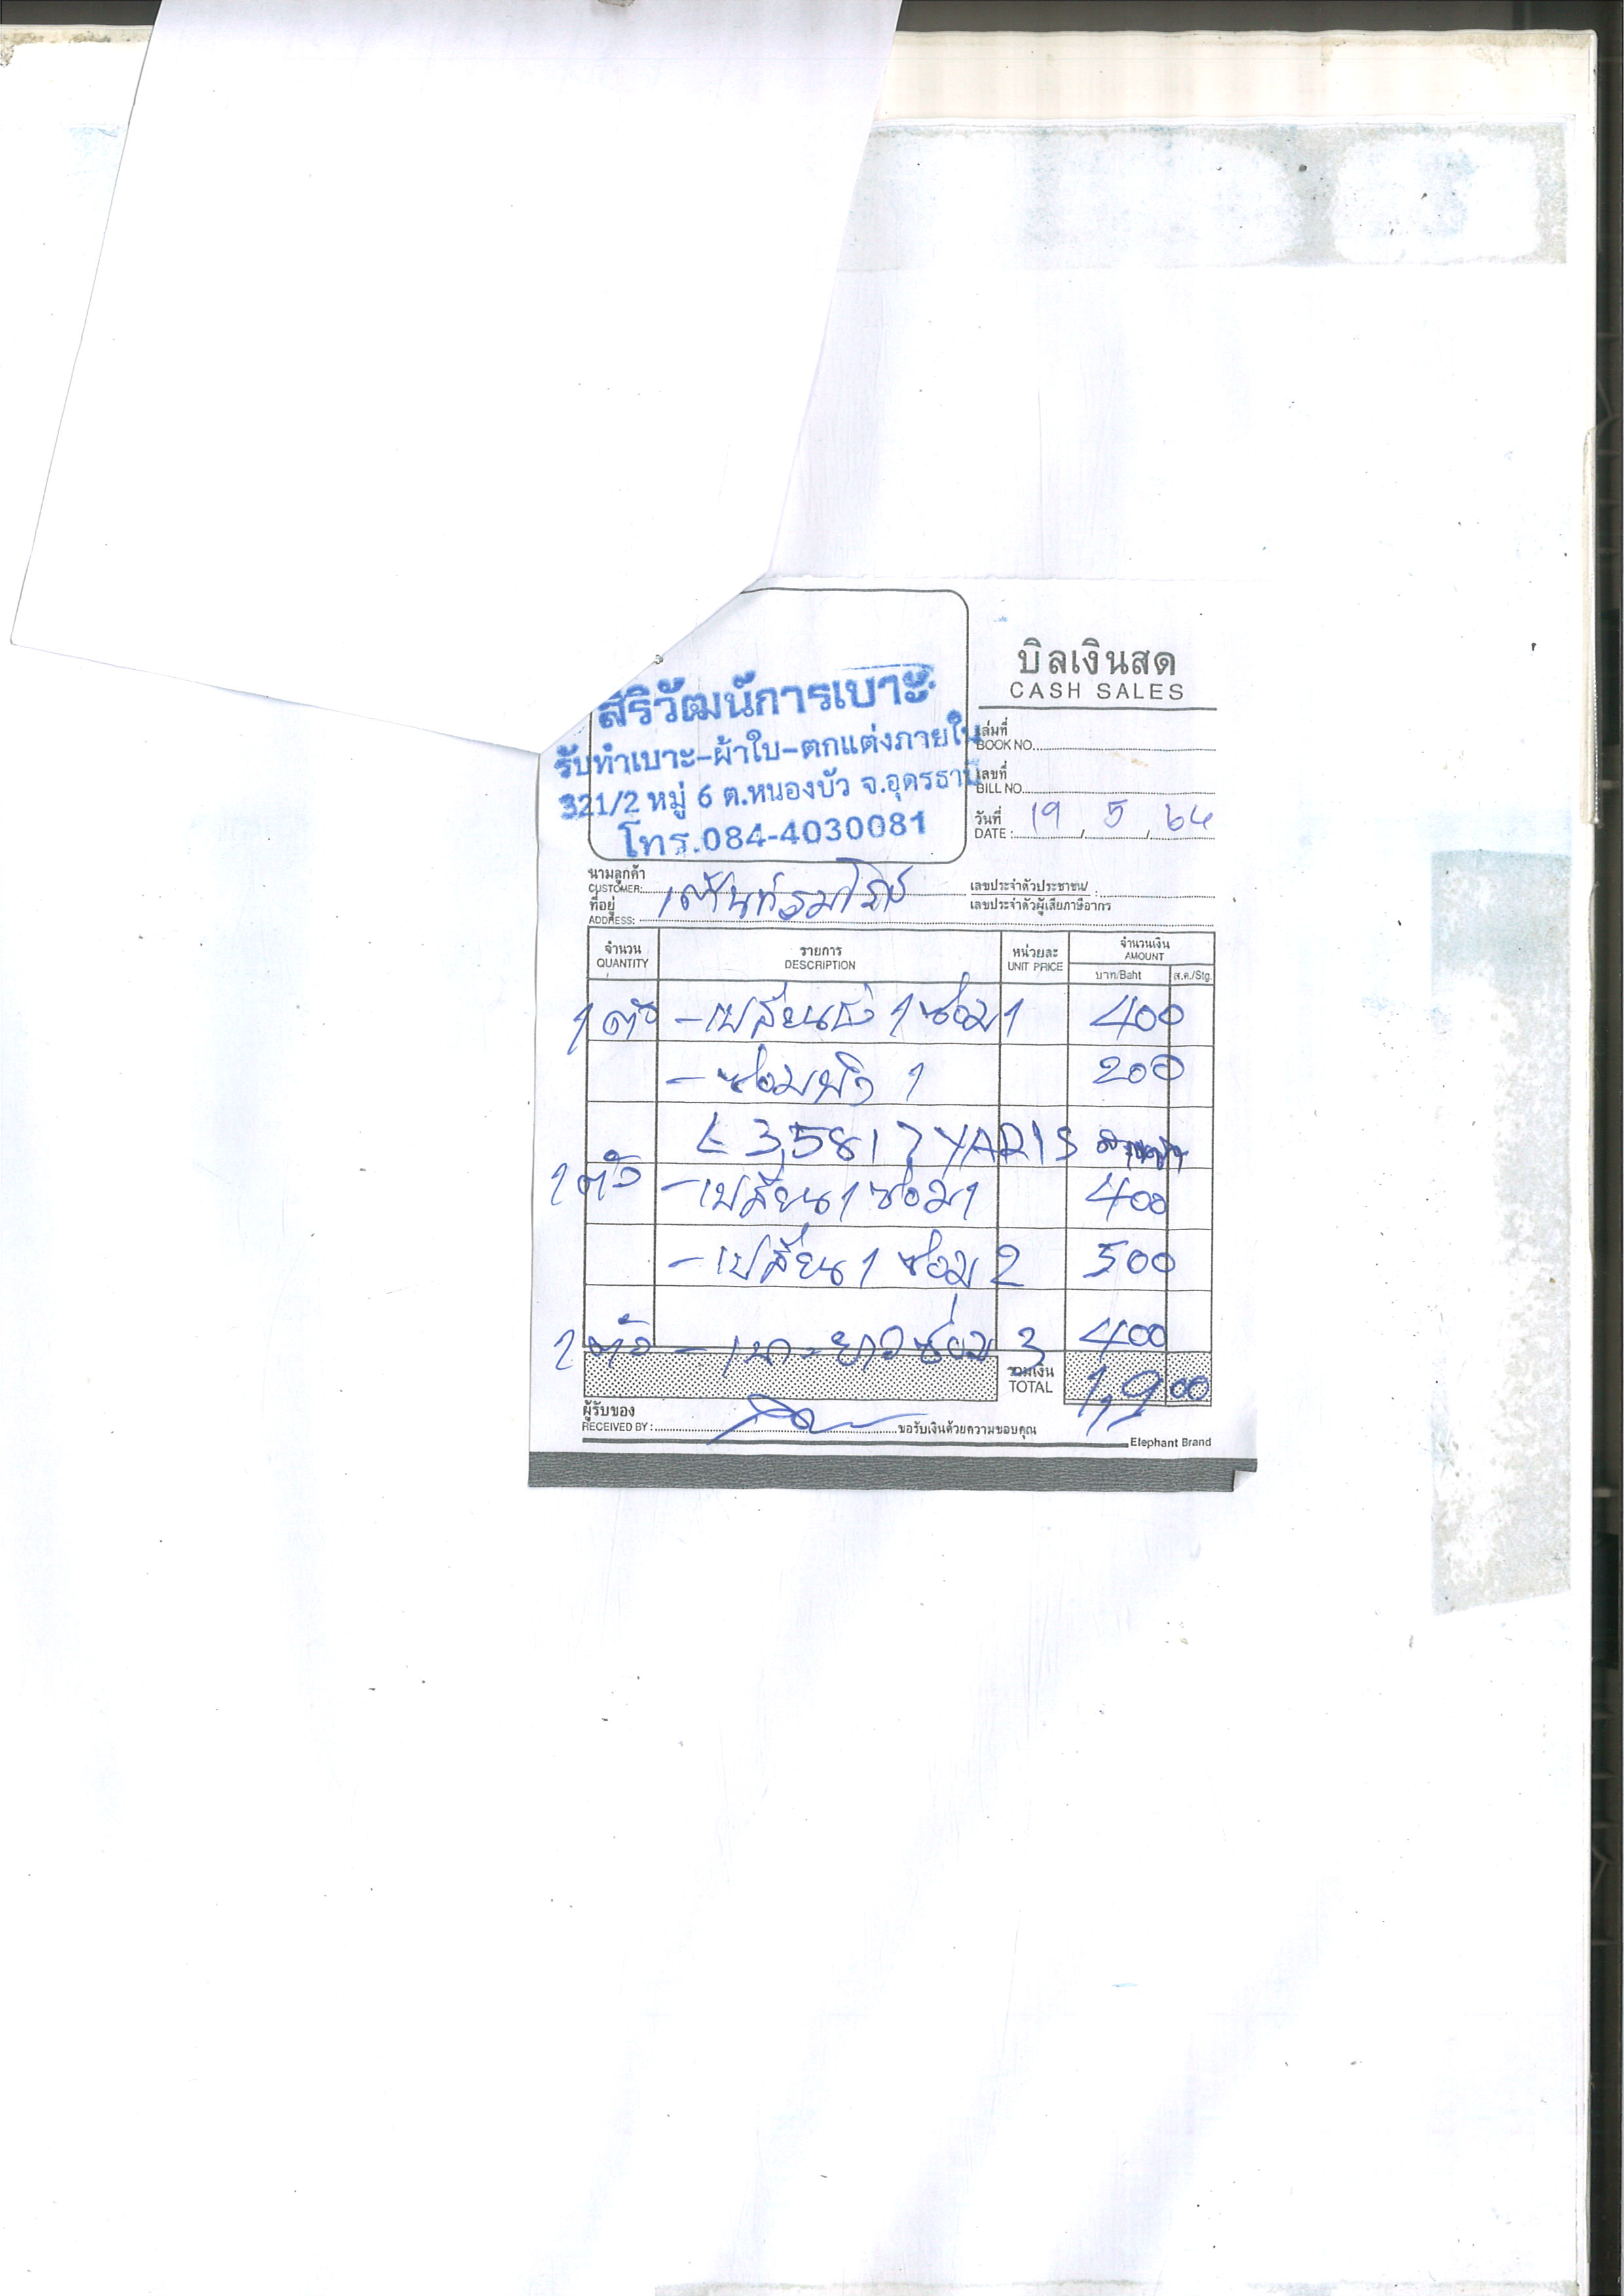 สิริวัฒน์การเบาะ
รับทำเบาะ-ผ้าใบ-ตกแต่งภายใน
321/2 หมู่ 6 ต.หนองบัว จ.อุดรธานี
โทร.084-4030081
บิลเงินสด
CASH SALES
เล่มที่
BOOK NO.
เลขที่
BILL NO.
วันที่
DATE : 19 / 5 / 64
นามลูกค้า
CUSTOMER:
ที่อยู่
ADDRESS:
เลขประจำตัวประชาชน/ :
เลขประจำตัวผู้เสียภาษีอากร
จำนวน รายการ หน่วยละ จำนวนเงิน
QUANTITY DESCRIPTION UNIT PRICE AMOUNT
บาท/Baht ส.ต./Stg.
1 ตัว - เปลี่ยน 1 ซ่อม 1 400
- ซ่อม 1 200
YARIS
1 ตัว - เปลี่ยน 1 ซ่อม 1 400
- เปลี่ยน 1 ซ่อม 2 500
ตัว - เบาะยาวซ่อม 3 400
รวมเงิน
TOTAL 1,900
ผู้รับของ
RECEIVED BY : ขอรับเงินด้วยความขอบคุณ
Elephant Brand